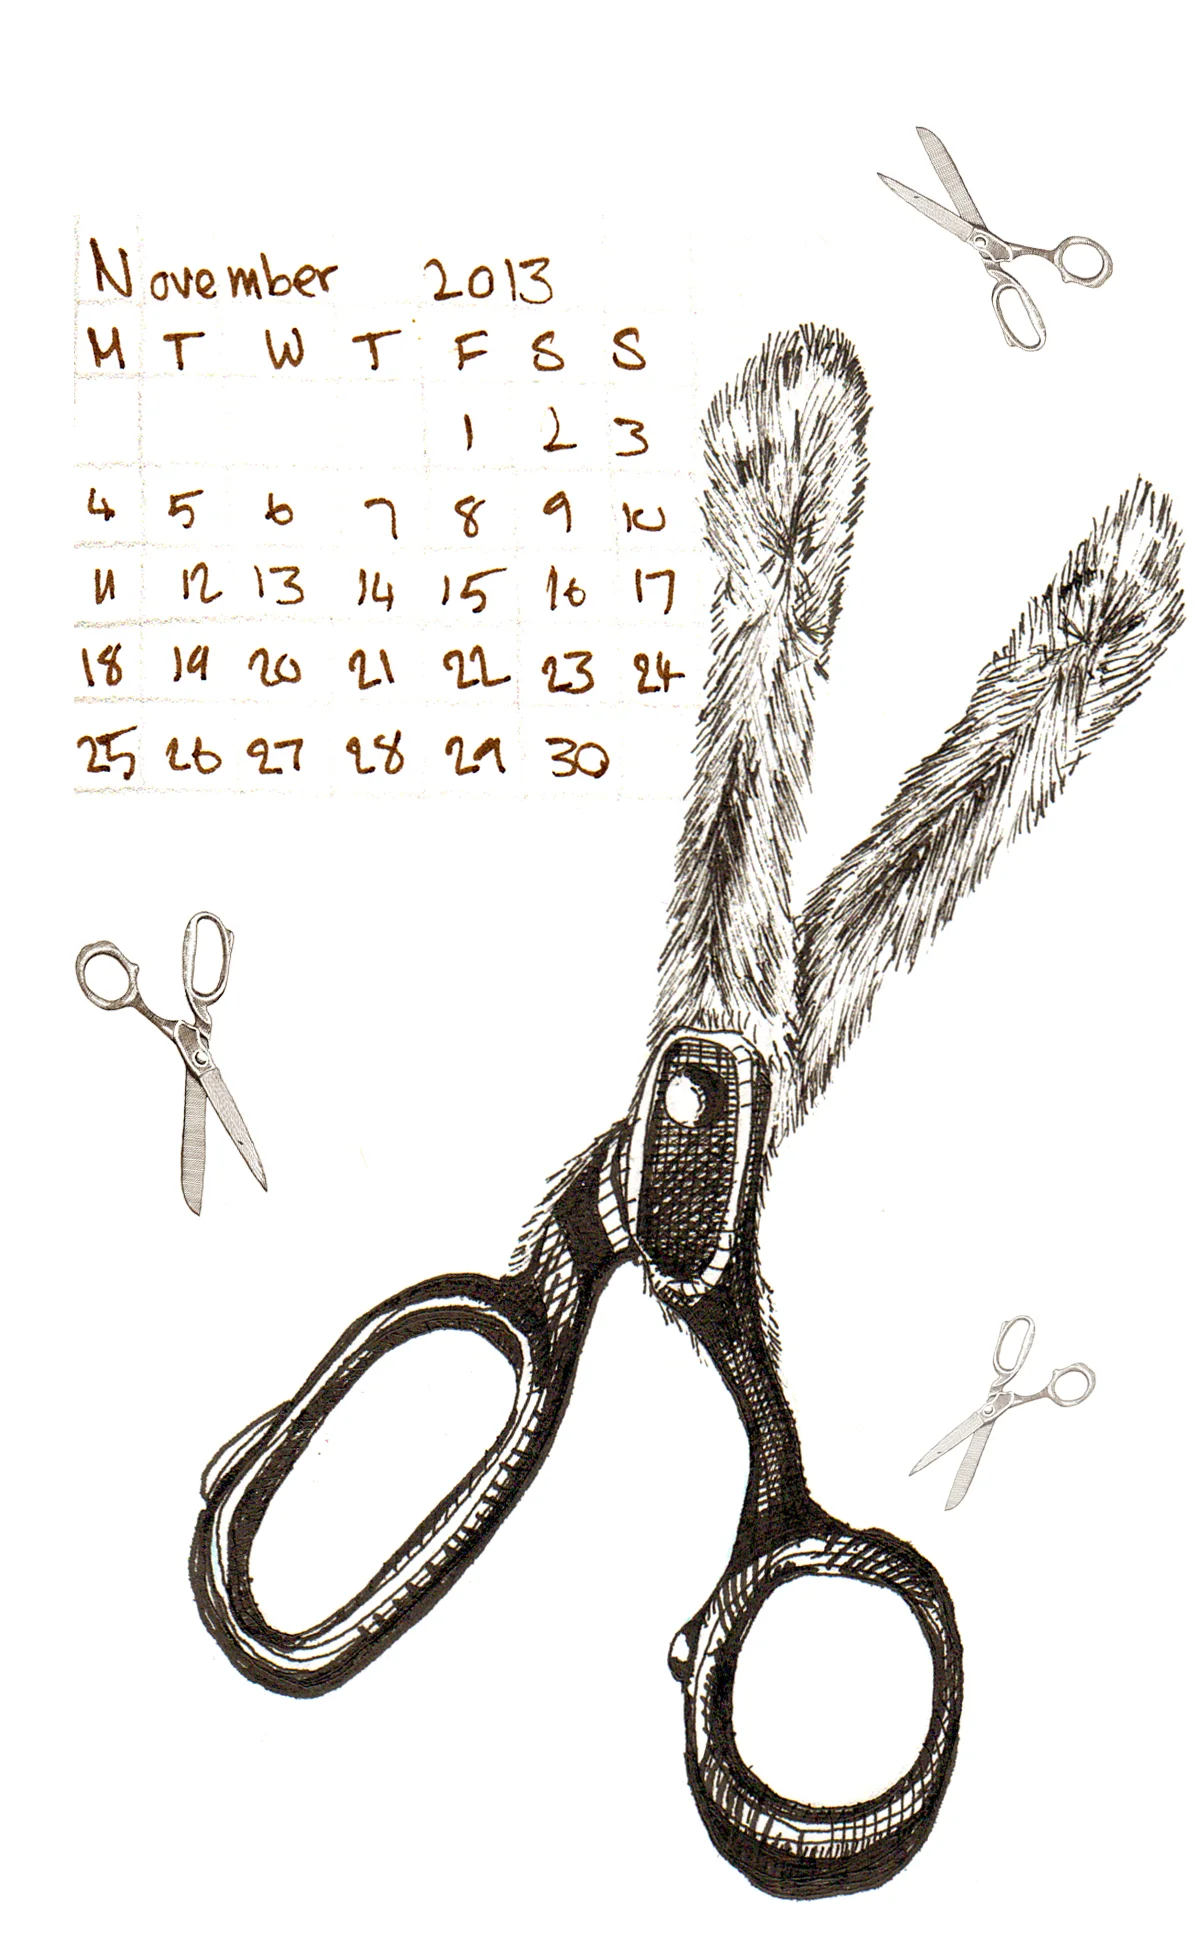 November 2013
M T W T F S S
1 2 3
4 5 6 7 8 9 10
11 12 13 14 15 16 17
18 19 20 21 22 23 24
25 26 27 28 29 30